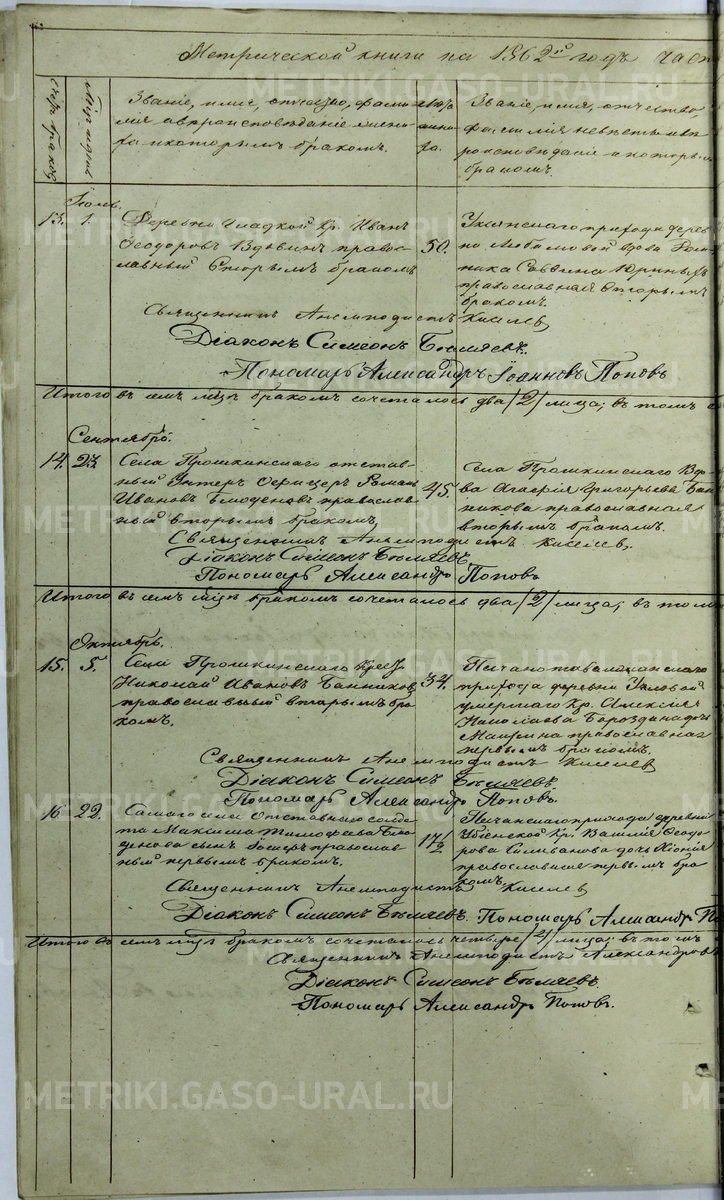 Метрической книги на 1862ой годъ част
Счетъ браковъ
Мѣсяцъ и день
Званіе, имя, отчество, фами
лія и вѣроисповѣданіе жени
ха и которымъ бракомъ.
Лѣта
жени
ха.
Званіе, имя, отчество,
фамилія невѣсты и вѣ
роисповѣданіе и которымъ
бракомъ.
Іюль.
13. 1. Деревни Гладкой Кр. Иванъ
Ѳеодоровъ Вдовинъ правос-
лавный вторымъ бракомъ
50.
прихода дерев
ни Любимовой вдова
Саввина Юриныхъ
православная вторымъ
бракомъ.
Священникъ Анемподистъ Киселев
Діаконъ Симеонъ Бѣляевъ.
Пономарь Александръ Іоанновъ Поповъ
Итого въ семъ мцѣ бракомъ сочеталось два /2/ лица; въ томъ
Сентябрь.
14. 23. Села Прошкинскаго отстав-
ный Унтеръ Офицеръ Романъ
Ивановъ православ
ный вторымъ бракомъ,
45.
Села Прошкинскаго Вдо-
ва Агафія Григорьева Бан
никова православная
вторымъ бракомъ.
Священникъ Анемподистъ Киселев,
Діаконъ Симеонъ Бѣляевъ,
Пономарь Александръ Поповъ
Итого въ семъ мцѣ бракомъ сочеталось два /2/ лица; въ томъ
Октябрь.
15. 5. Села Прошкинскаго Крест.
Николай Ивановъ Банниковъ
православный вторымъ бра
комъ.
34.
прихода деревни
умершаго Кр. Алексѣя
Николаева Бороздина дочь
православная
первымъ бракомъ.
Священникъ Анемподистъ Киселев
Діаконъ Симеонъ Бѣляевъ
Пономарь Александръ Поповъ.
16 22. Самаго села Отставнаго солда
та Максима Тимофеева
сынъ Іосифъ православ
ный первымъ бракомъ.
17½
прихода деревни
Кр. Василія Ѳеодо
рова Селиванова дочь Хіонія
православная первымъ бра
комъ
Священникъ Анемподистъ Киселев
Діаконъ Симеонъ Бѣляевъ. Пономарь Александръ П
Итого въ семъ мцѣ бракомъ сочеталось четыре лица; въ томъ
Священникъ Анемподистъ Александровъ
Діаконъ Симеонъ Бѣляевъ.
Пономарь Александръ Поповъ.
METRIKI.GASO-URAL.RU